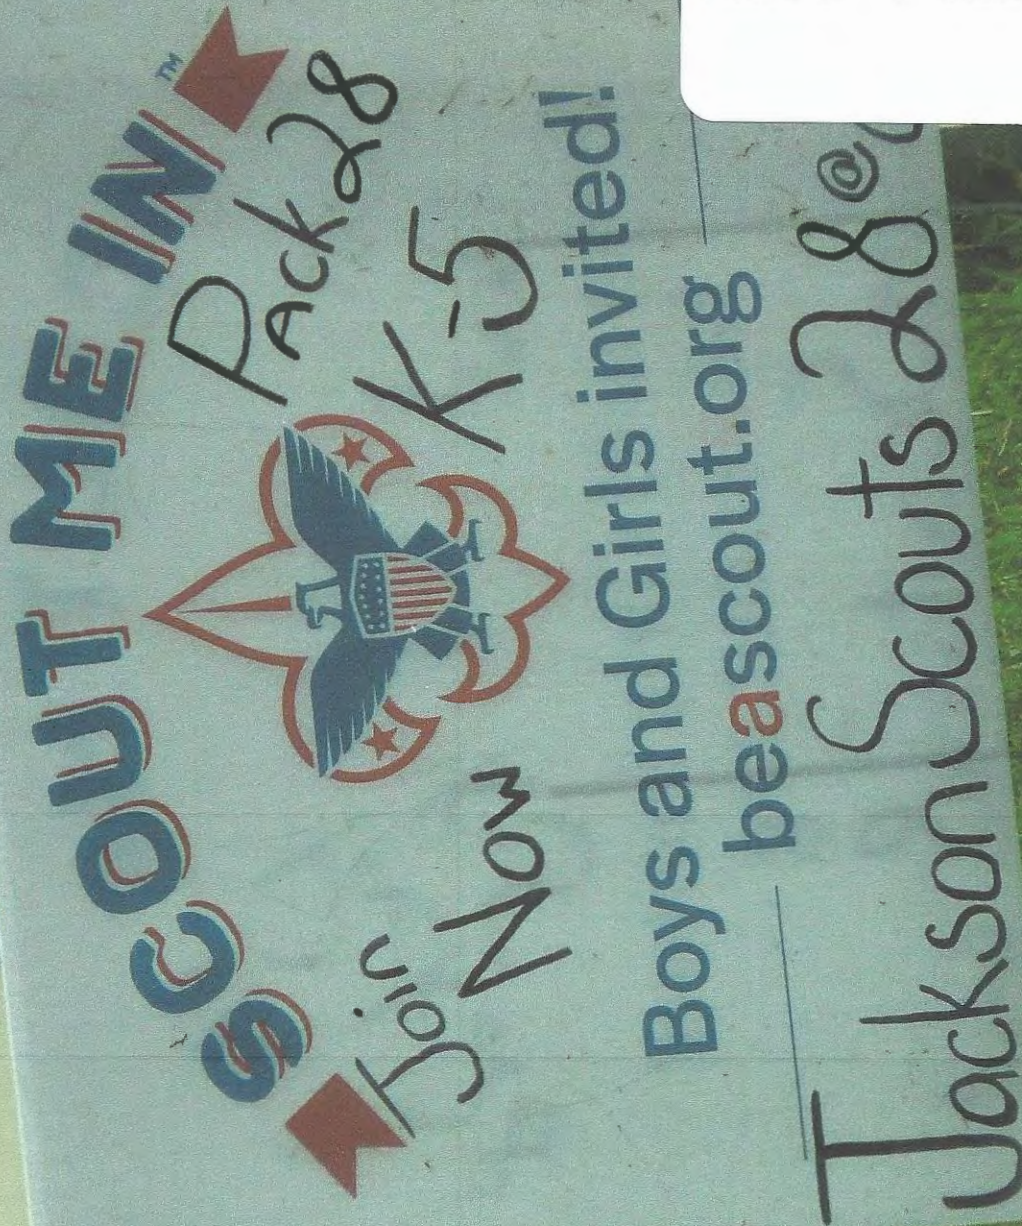 SCOUT ME IN™
Join
Now
Pack 28
K-5
Boys and Girls invited!
beascout.org
JacksonScouts28@